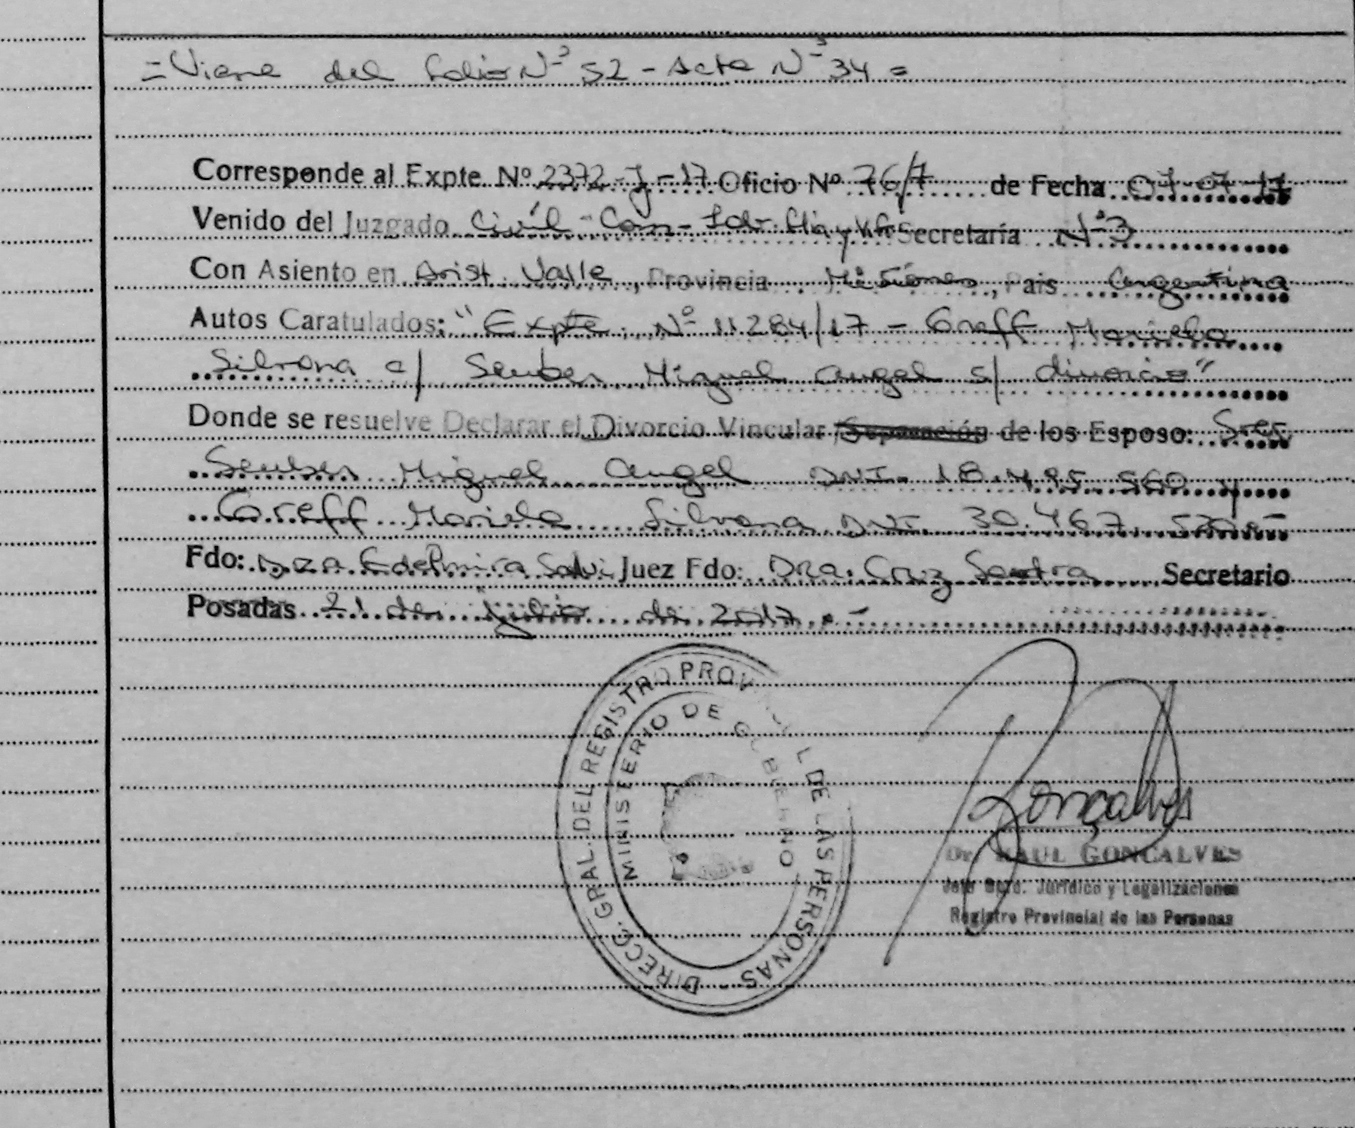 =Viene del folio Nº 52 - Acta Nº 34=
Corresponde al Expte. Nº 2372-J-17 Oficio Nº 76/7 de Fecha 07-07-17
Venido del Juzgado Civil-Com-Lab. Flia y V.F. Secretaría Nº 3
Con Asiento en Arist. Valle, Provincia Misiones, Pais Argentina
Autos Caratulados: "Expte. Nº 11284/17 - Greff Mariela
Silvana c/ Seuber Miguel Angel s/ divorcio"
Donde se resuelve Declarar el Divorcio Vincular Separación de los Esposo: Sres
Seuber Miguel Angel DNI. 18.495 560 y
Greff Mariela Silvana DNI. 30.467.
Fdo: Dra Edelmira Juez Fdo: Dra. Cruz Sandra Secretario
Posadas 21 de julio de 2017.-
DIRECC. GRAL. DEL REGISTRO PROVINCIAL DE LAS PERSONAS
MINISTERIO DE GOBIERNO
Gonçalves
Dr. RAUL GONCALVES
Jefe Dpto. Jurídico y Legalizaciones
Registro Provincial de las Personas